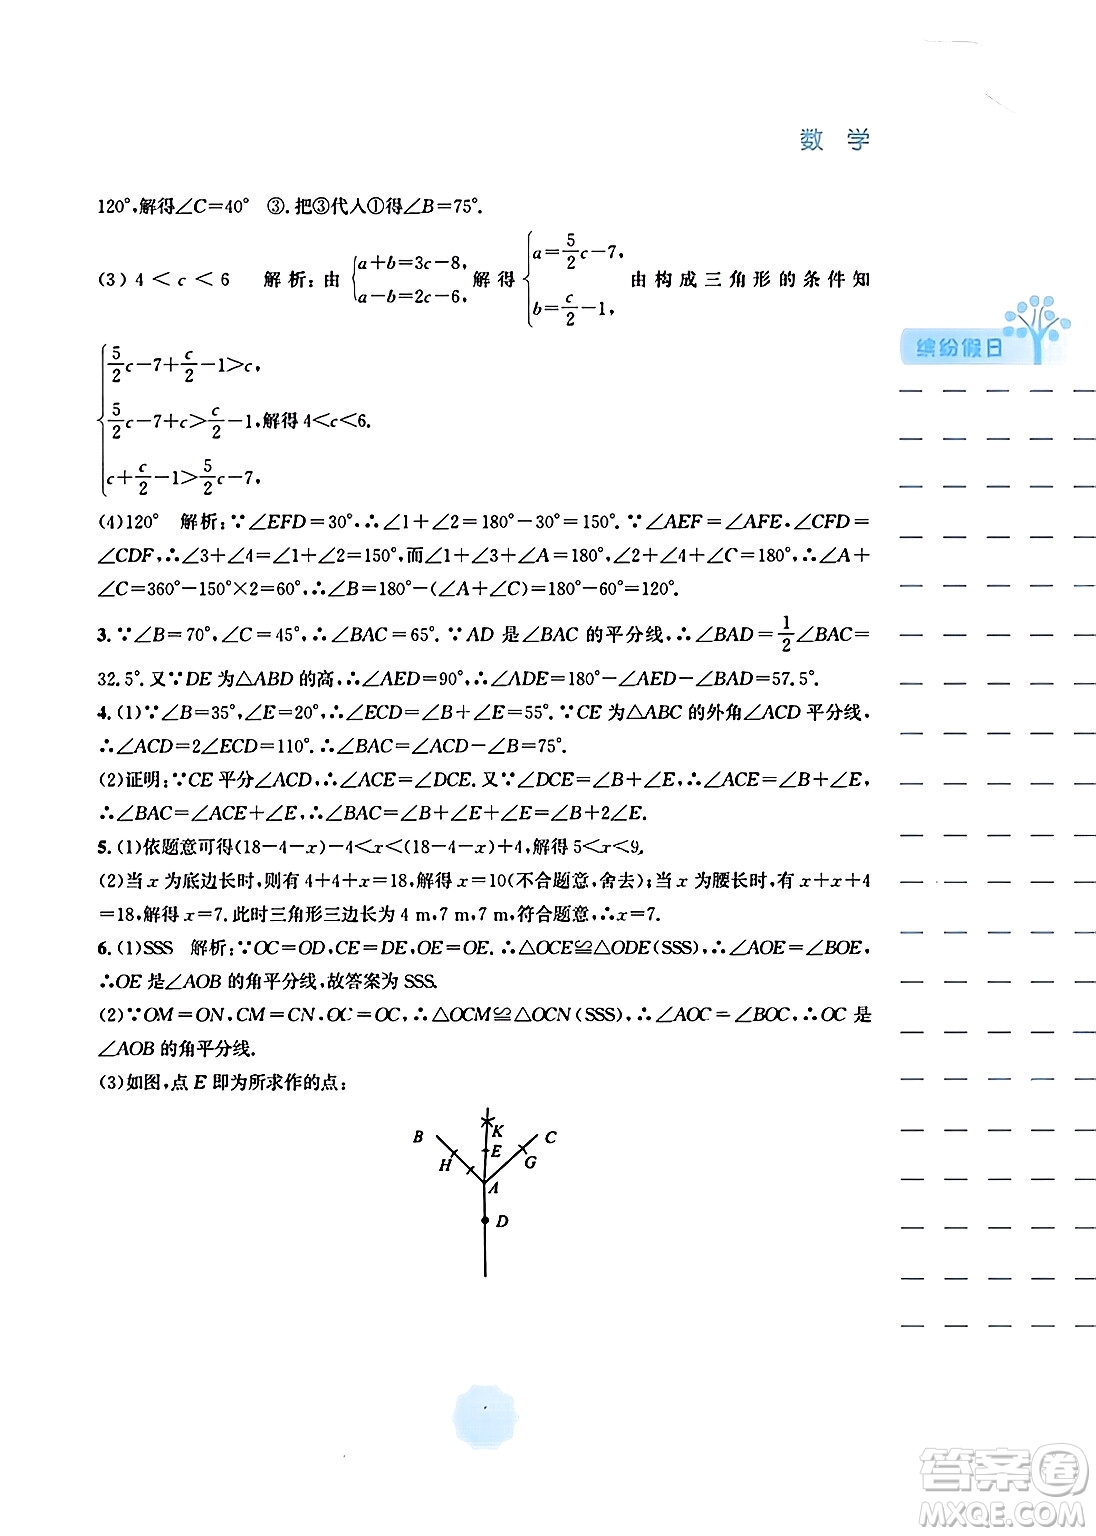 数 学
120°,解得∠C=40° ③.把③代人①得∠B=75°.
(3) 4<c<6 解析:由{a+b=3c-8, a-b=2c-6,解得{a=5/2c-7, b=c/2-1,由构成三角形的条件知
5/2c-7+c/2-1>c,
5/2c-7+c>c/2-1,解得4<c<6.
c+c/2-1>5/2c-7,
缤纷假日
(4)120° 解析:∵∠EFD=30°,∴∠1+∠2=180°-30°=150°.∵∠AEF=∠AFE,∠CFD=
∠CDF,∴∠3+∠4=∠1+∠2=150°,而∠1+∠3+∠A=180°,∠2+∠4+∠C=180°,∴∠A+
∠C=360°-150°×2=60°,∴∠B=180°-(∠A+∠C)=180°-60°=120°.
3.∵∠B=70°,∠C=45°,∴∠BAC=65°.∵AD是∠BAC的平分线,∴∠BAD=1/2∠BAC=
32.5°.又∵DE为△ABD的高,∴∠AED=90°,∴∠ADE=180°-∠AED-∠BAD=57.5°.
4.(1)∵∠B=35°,∠E=20°,∴∠ECD=∠B+∠E=55°.∵CE为△ABC的外角∠ACD平分线,
∴∠ACD=2∠ECD=110°.∴∠BAC=∠ACD-∠B=75°.
(2)证明:∵CE平分∠ACD,∴∠ACE=∠DCE.又∵∠DCE=∠B+∠E,∴∠ACE=∠B+∠E,
∴∠BAC=∠ACE+∠E,∴∠BAC=∠B+∠E+∠E=∠B+2∠E.
5.(1)依题意可得(18-4-x)-4<x<(18-4-x)+4,解得5<x<9.
(2)当x为底边长时,则有4+4+x=18,解得x=10(不合题意,舍去);当x为腰长时,有x+x+4
=18,解得x=7.此时三角形三边长为4 m,7 m,7 m,符合题意,∴x=7.
6.(1)SSS 解析:∵OC=OD,CE=DE,OE=OE.∴△OCE≌△ODE(SSS),∴∠AOE=∠BOE,
∴OE是∠AOB的角平分线,故答案为SSS.
(2)∵OM=ON,CM=CN,OC=OC,∴△OCM≌△OCN(SSS),∴∠AOC=∠BOC,∴OC是
∠AOB的角平分线.
(3)如图,点E即为所求作的点:
B K C
H E G
A
D
答案圈
MXQE.COM